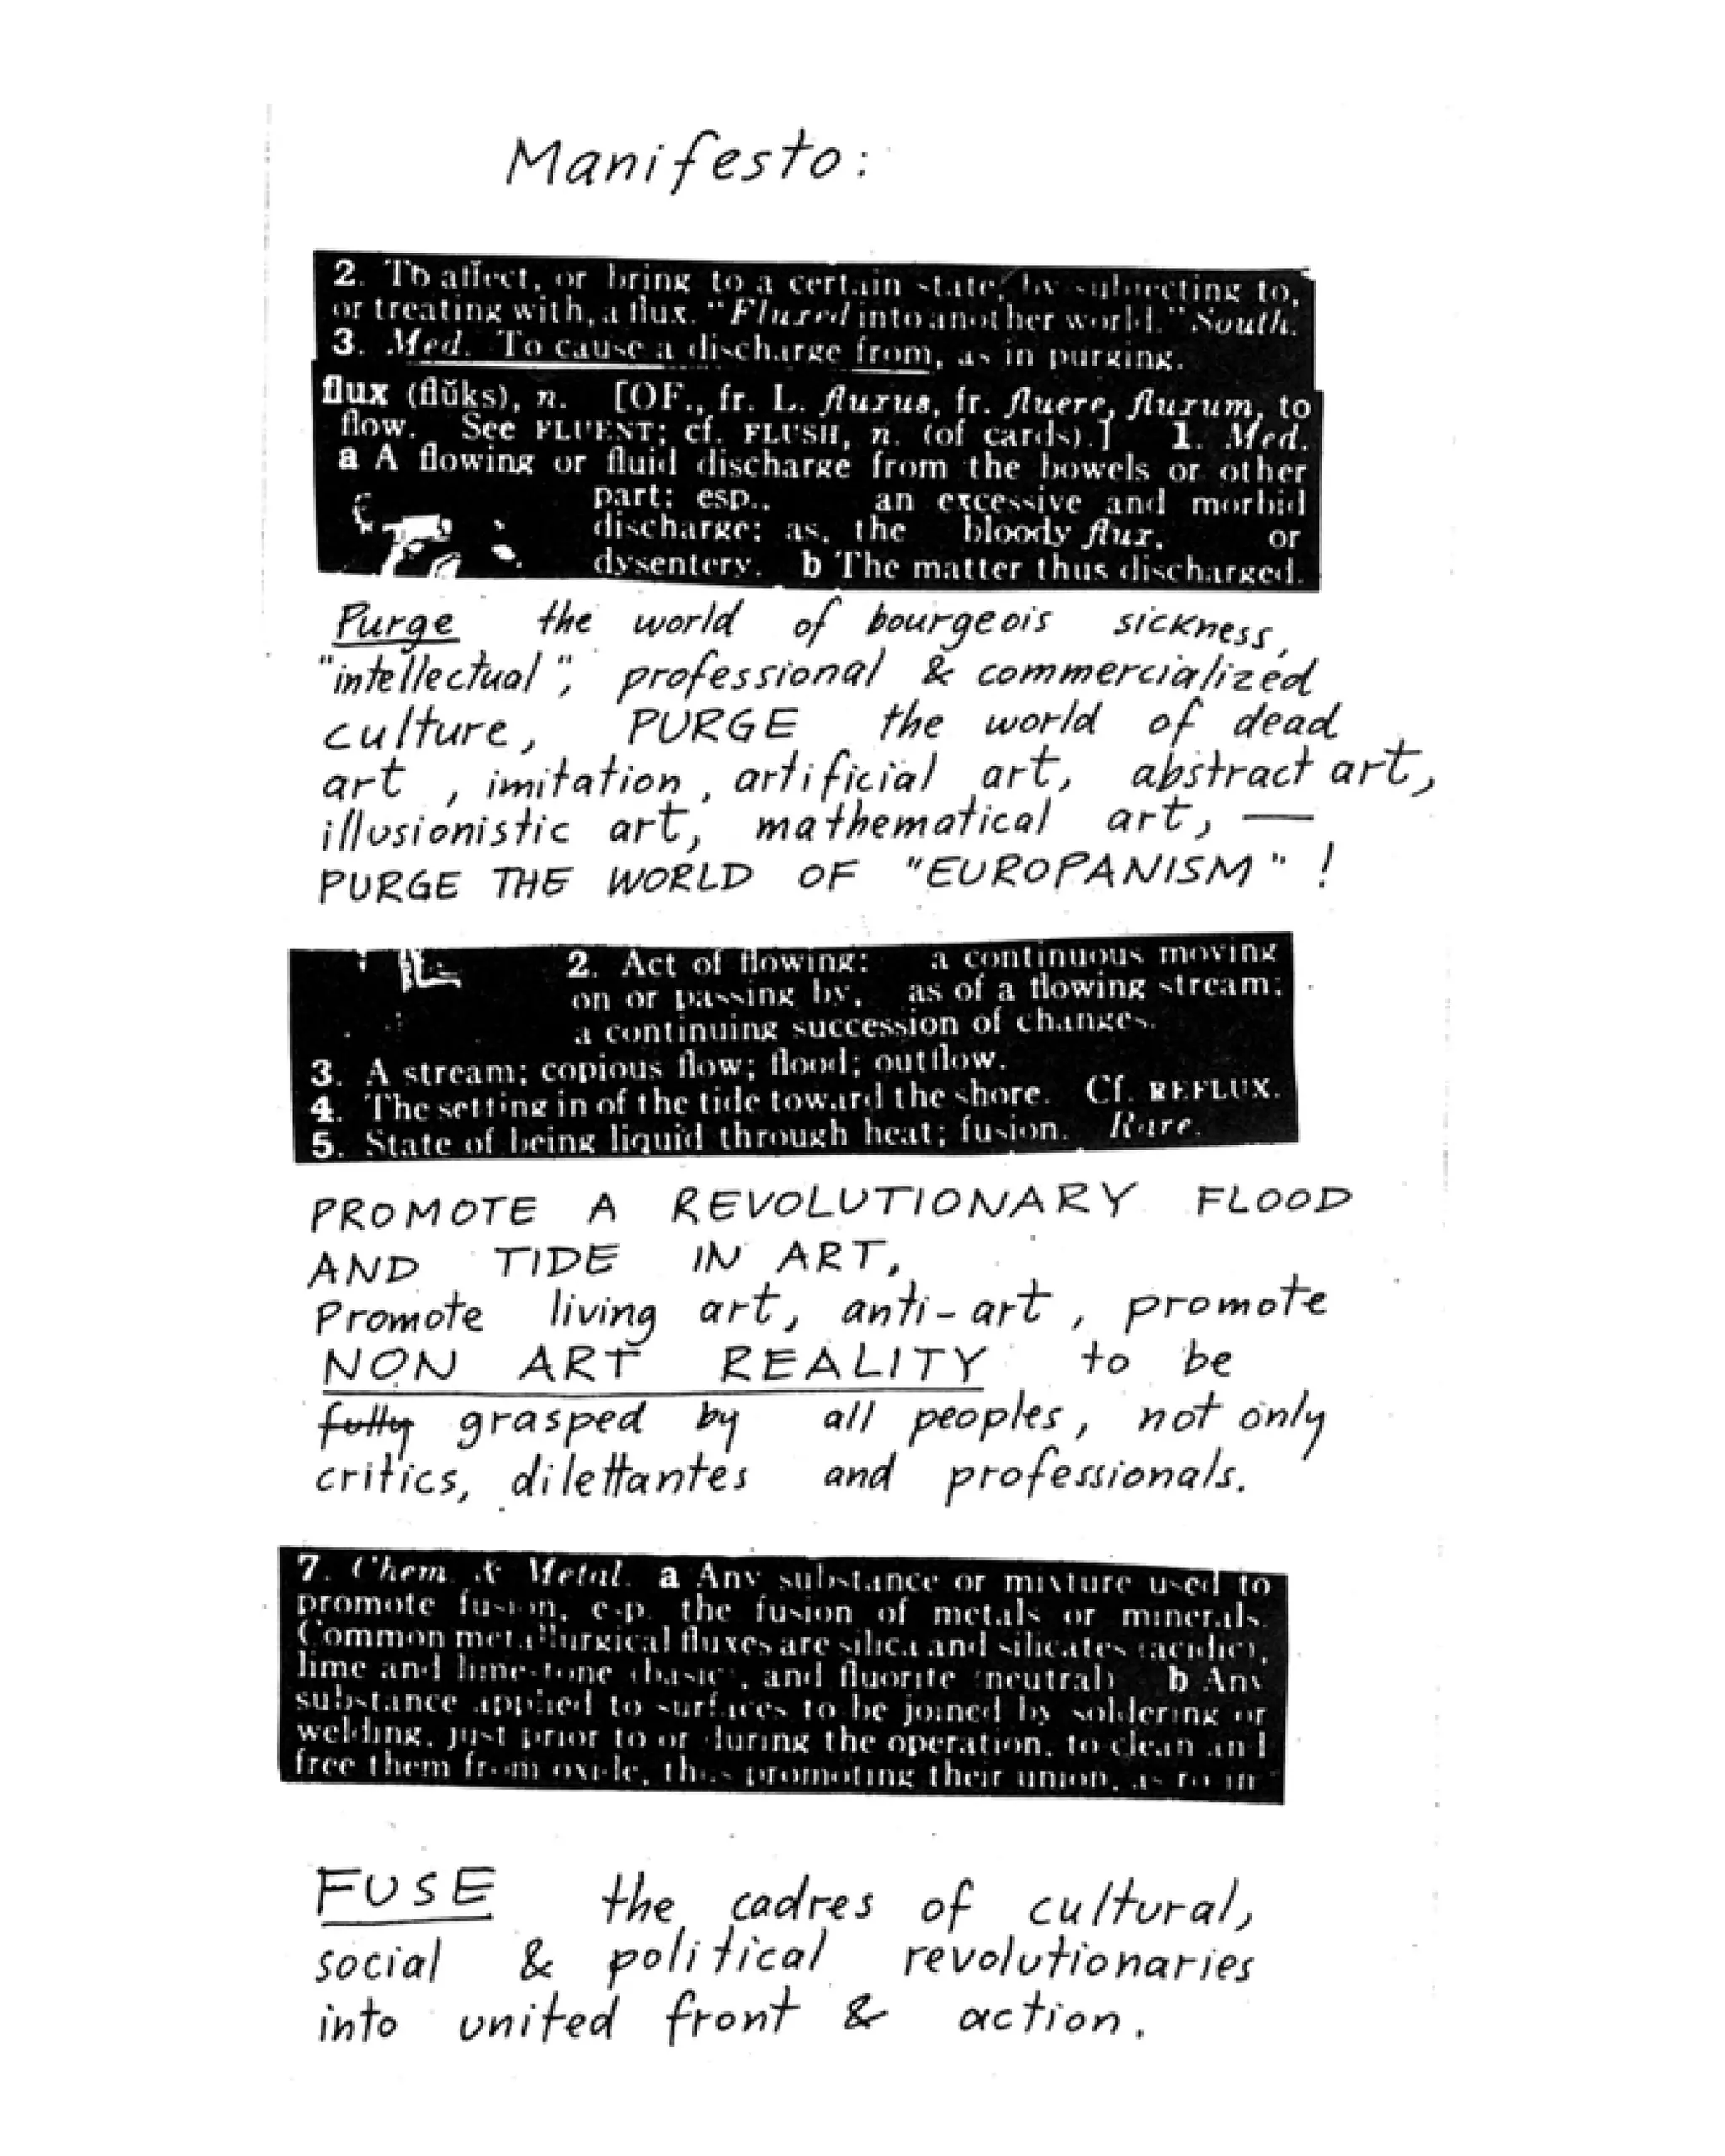 Manifesto:
2. To affect, or bring to a certain state, by subjecting to,
or treating with, a flux. "Fluxed into another world." South.
3. Med. To cause a discharge from, as in purging.
flux (flŭks), n. [OF., fr. L. fluxus, fr. fluere, fluxum, to
flow. See FLUENT; cf. FLUSH, n. (of cards).] 1. Med.
a A flowing or fluid discharge from the bowels or other
part: esp., an excessive and morbid
discharge: as, the bloody flux, or
dysentery. b The matter thus discharged.
Purge the world of bourgeois sickness,
"intellectual", professional & commercialized
culture, PURGE the world of dead
art, imitation, artificial art, abstract art,
illusionistic art, mathematical art, —
PURGE THE WORLD OF "EUROPANISM"!
2. Act of flowing: a continuous moving
on or passing by, as of a flowing stream;
a continuing succession of changes.
3. A stream; copious flow; flood; outflow.
4. The setting in of the tide toward the shore. Cf. REFLUX.
5. State of being liquid through heat; fusion. Rare.
PROMOTE A REVOLUTIONARY FLOOD
AND TIDE IN ART,
Promote living art, anti-art, promote
NON ART REALITY to be
fully grasped by all peoples, not only
critics, dilettantes and professionals.
7. Chem. & Metal. a Any substance or mixture used to
promote fusion, esp. the fusion of metals or minerals.
Common metallurgical fluxes are silica and silicates (acidic),
lime and limestone (basic), and fluorite (neutral). b Any
substance applied to surfaces to be joined by soldering or
welding, just prior to or during the operation, to clean and
free them from oxide, thus promoting their union, as
FUSE the cadres of cultural,
social & political revolutionaries
into united front & action.